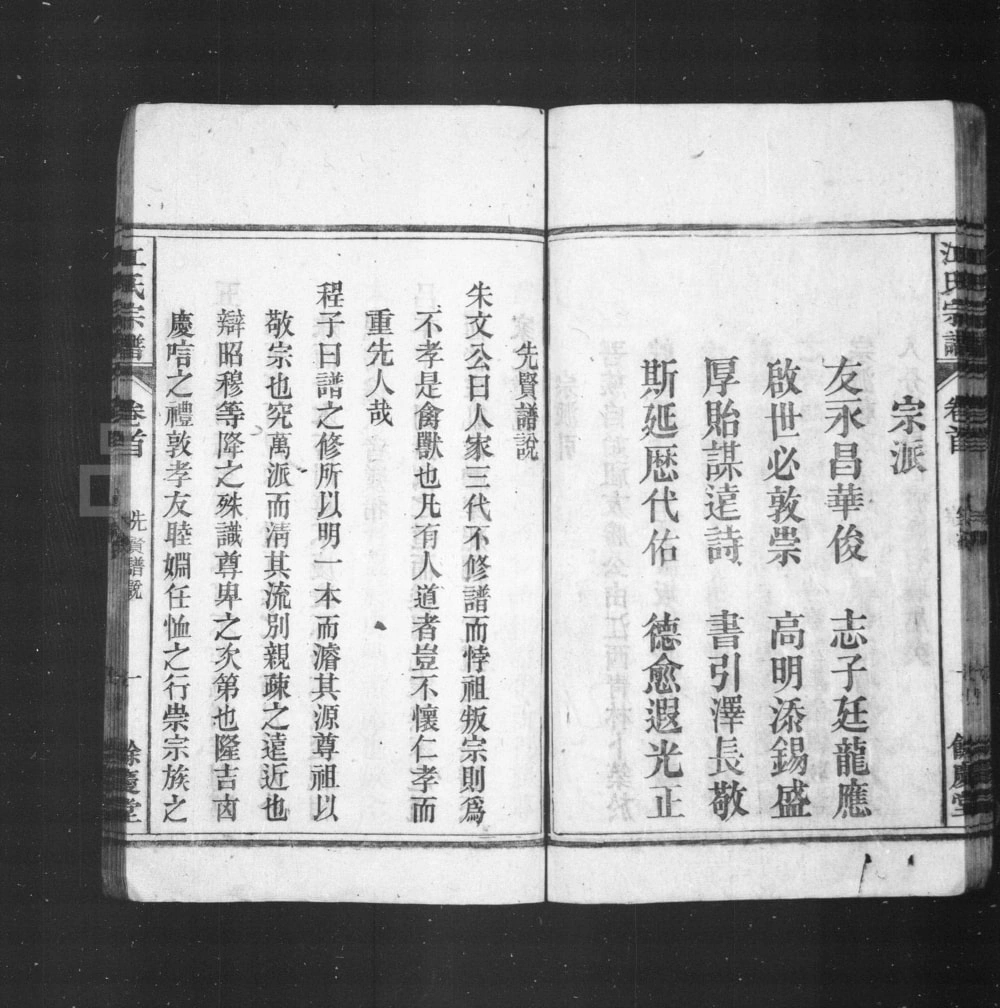 江氏宗譜
卷首
餘慶堂
宗派
友永昌華俊 志子廷龍應
啟世必敦崇 高明添錫盛
厚貽謀遠詩 書引澤長敬
斯延歷代佑 德愈遐光正
先賢譜說
朱文公曰人家三代不修譜而悖祖叛宗則為
不孝是禽獸也凡有人道者豈不懷仁孝而
重先人哉
程子曰譜之修所以明一本而濬其源尊祖以
敬宗也究萬派而清其流別親疎之遠近也
辯昭穆等降之殊識尊卑之次第也隆吉凶
慶唁之禮敦孝友睦婣任恤之行崇宗族之
江氏宗譜
卷首
先賢譜說
一
餘慶堂